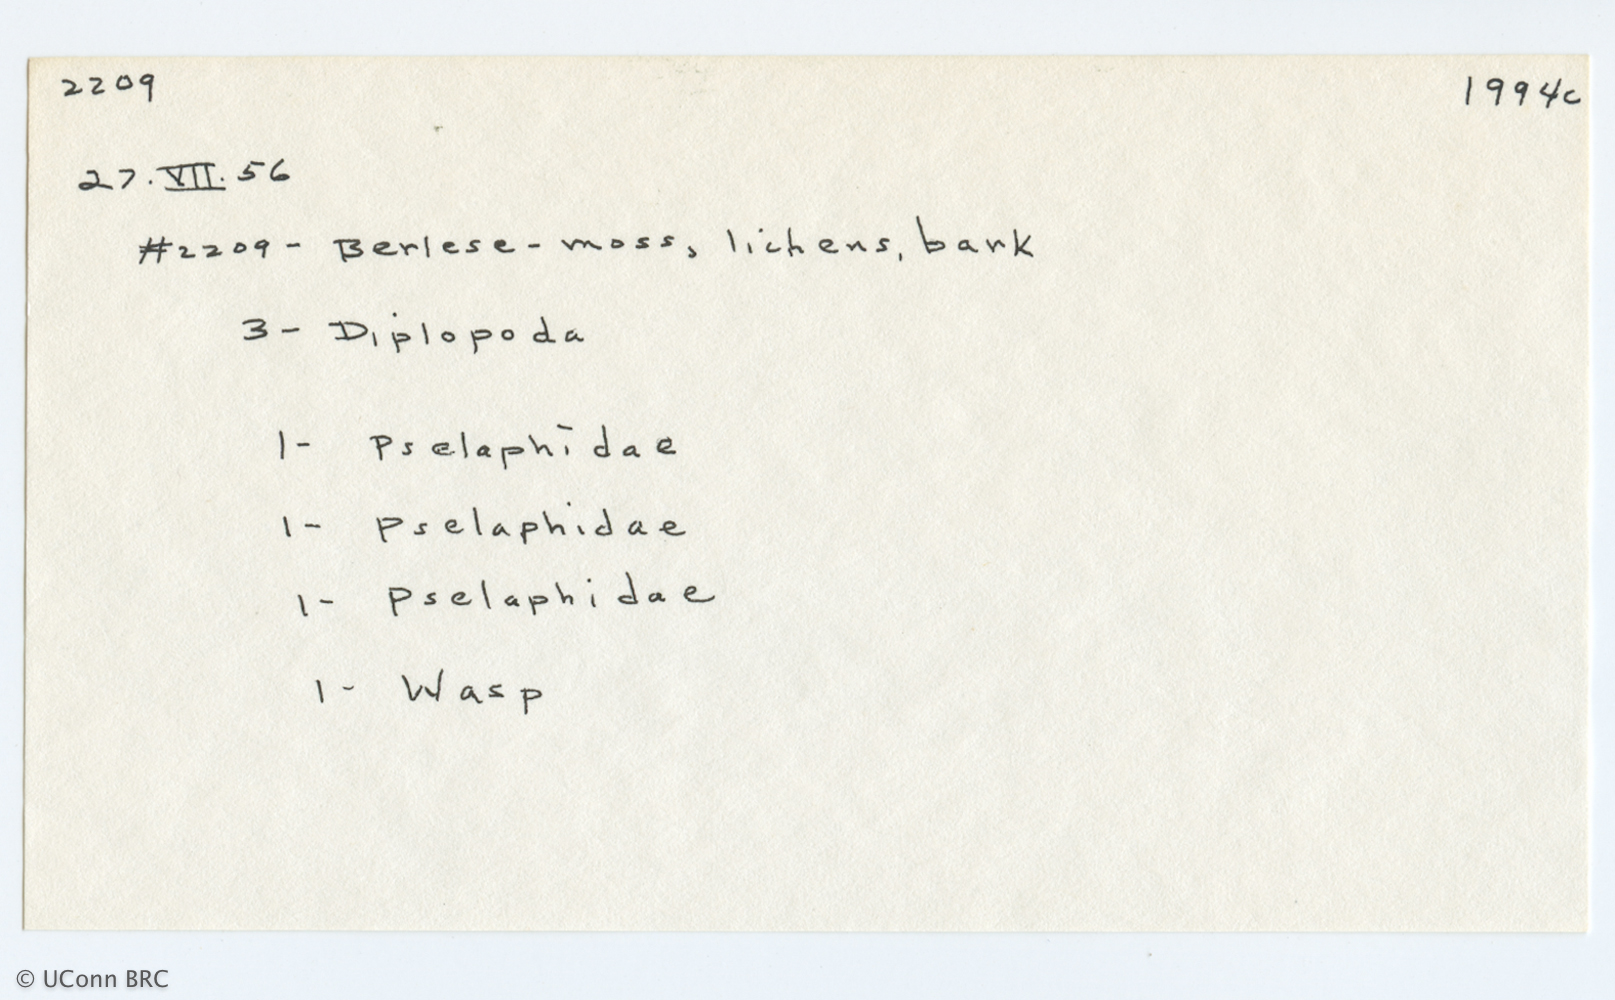 2209
1994c
27.VII.56
#2209 - Berlese - moss, lichens, bark
3 - Diplopoda
1 - Pselaphidae
1 - Pselaphidae
1 - Pselaphidae
1 - Wasp
© UConn BRC